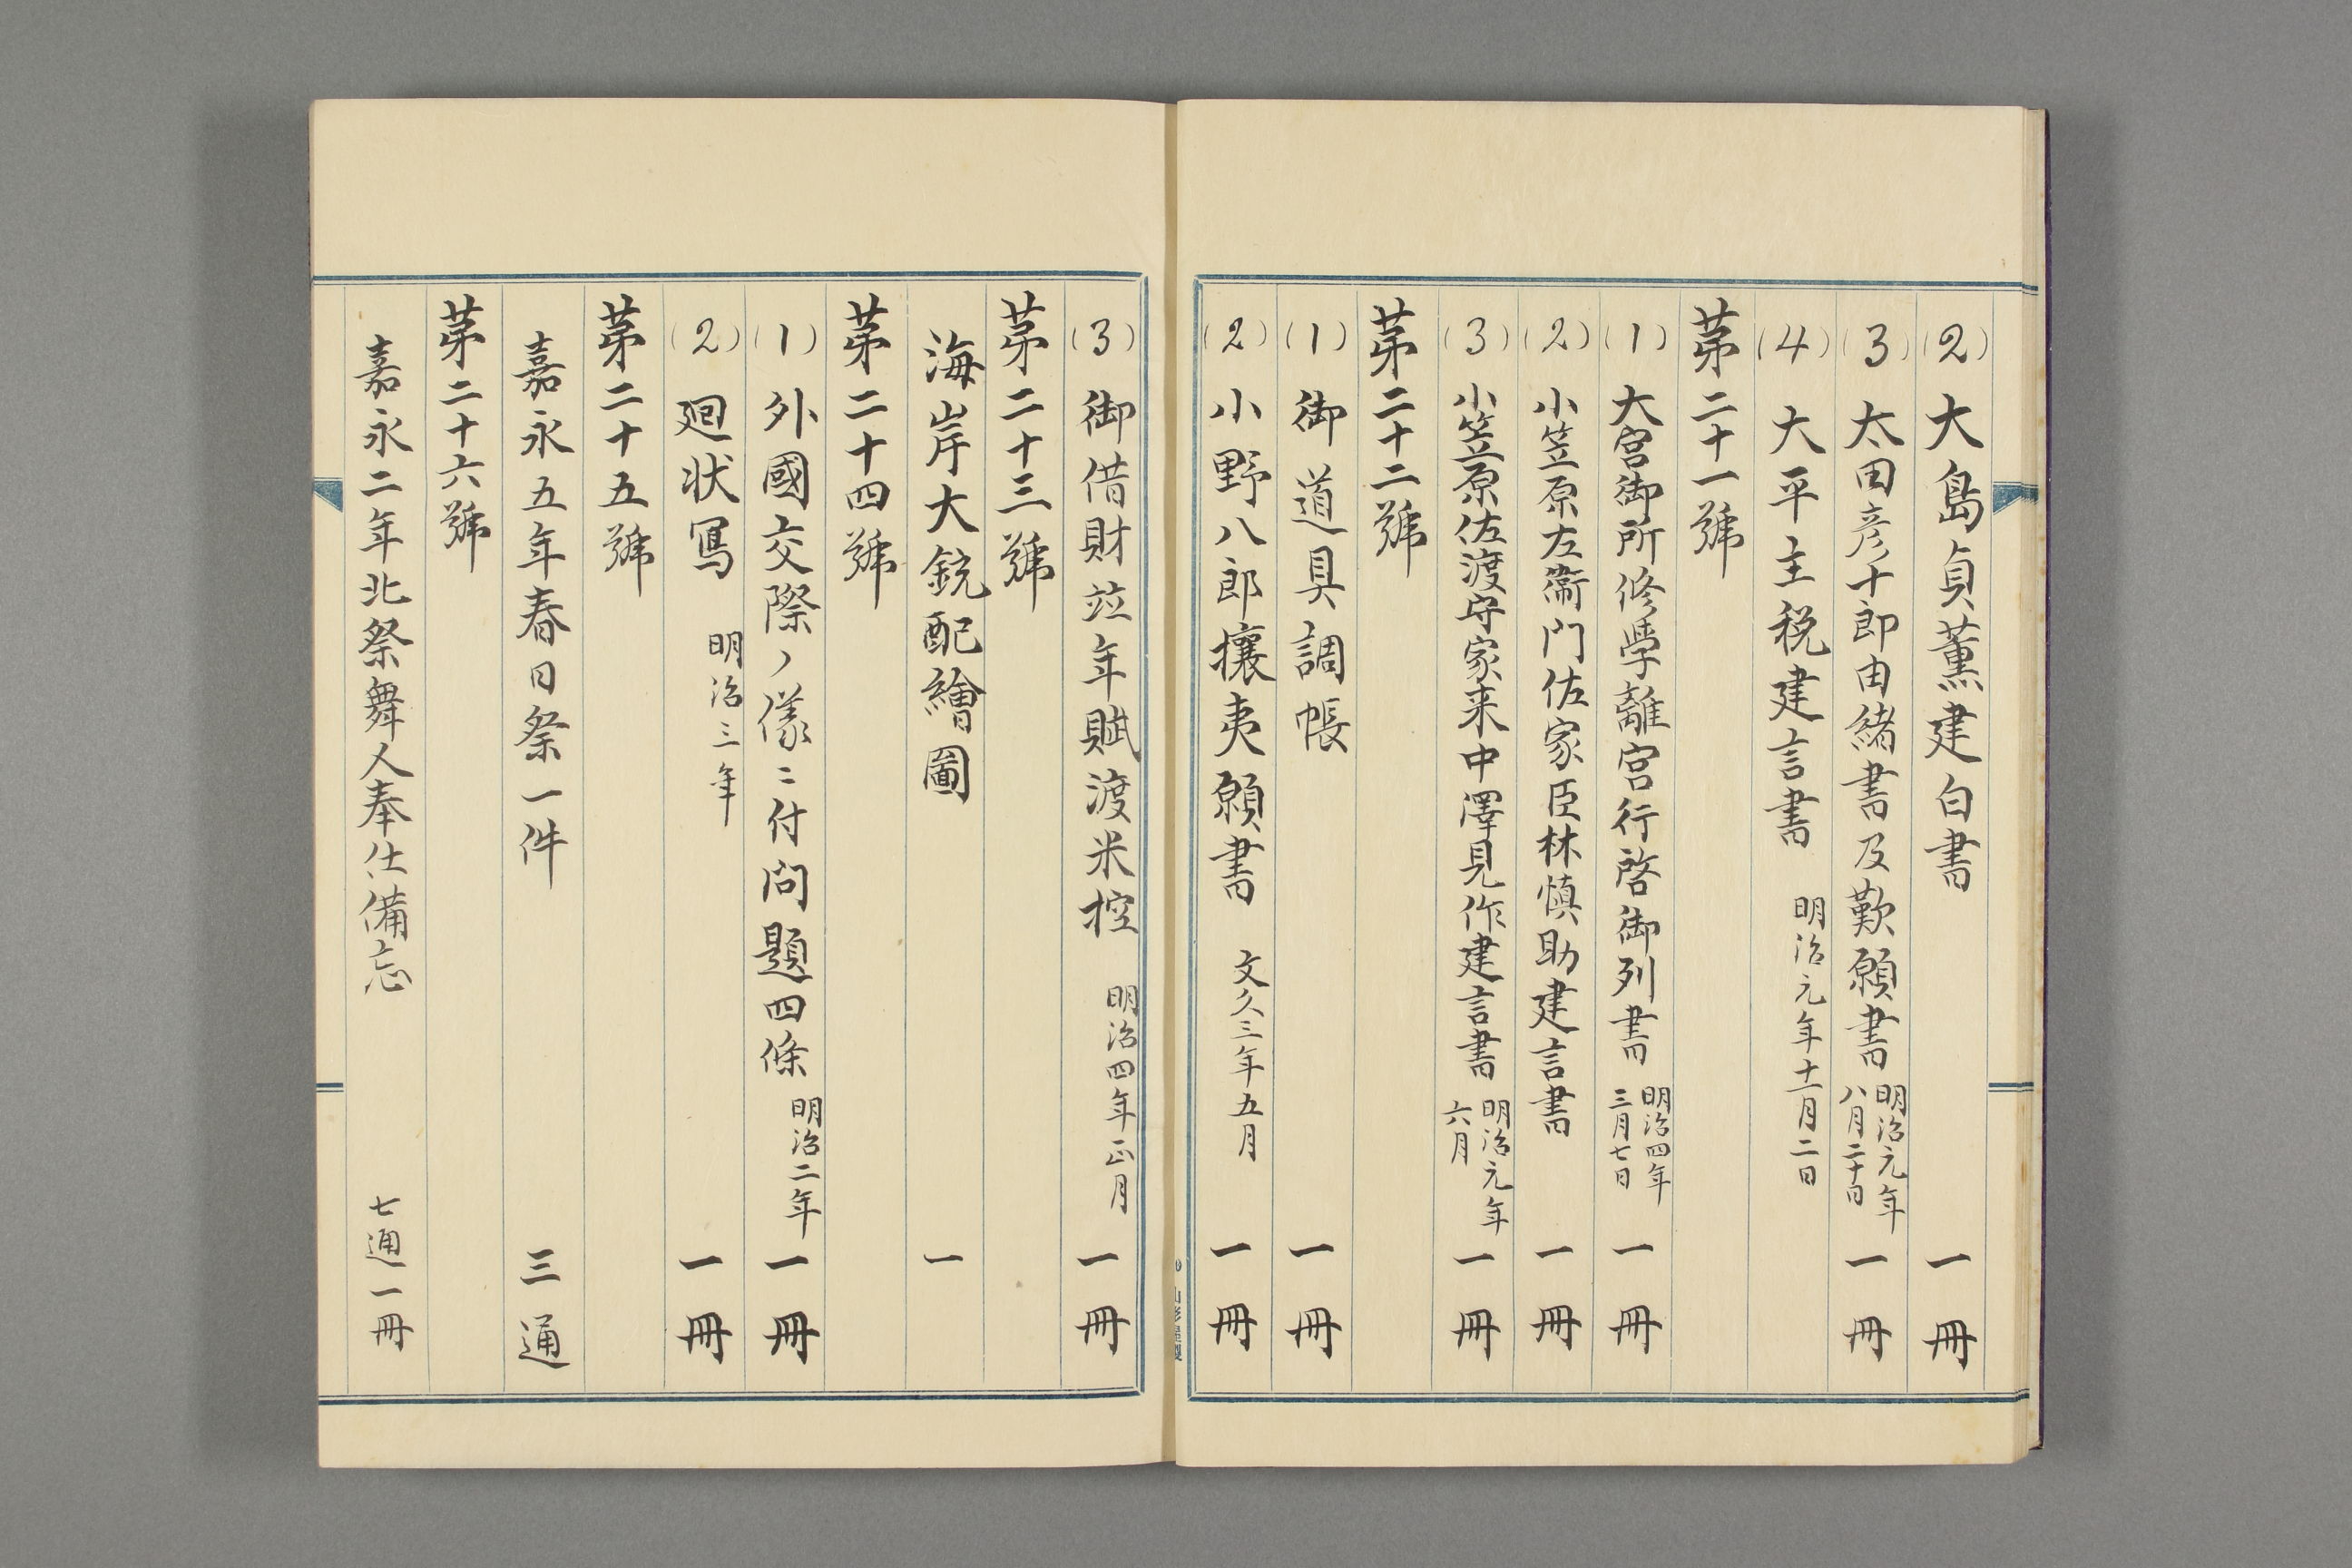 (2) 大島貞薫建白書 一冊
(3) 太田彦十郎由緒書及歎願書 明治元年八月二十日 一冊
(4) 大平主税建言書 明治元年十一月二日
苐二十一號
(1) 大宮御所修學離宮行啓御列書 明治四年三月七日 一冊
(2) 小笠原左衞門佐家臣林愼助建言書 一冊
(3) 小笠原佐渡守家来中澤見作建言書 明治元年六月 一冊
苐二十二號
(1) 御道具調帳 一冊
(2) 小野八郎攘夷願書 文久三年五月 一冊
(3) 御借財竝年賦渡米控 明治四年正月 一冊
苐二十三號
海岸大銃配繪圖 一
苐二十四號
(1) 外國交際ノ儀ニ付問題四條 明治二年 一冊
(2) 廻状寫 明治三年 一冊
苐二十五號
嘉永五年春日祭一件 三通
苐二十六號
嘉永二年北祭舞人奉仕備忘 七通一冊